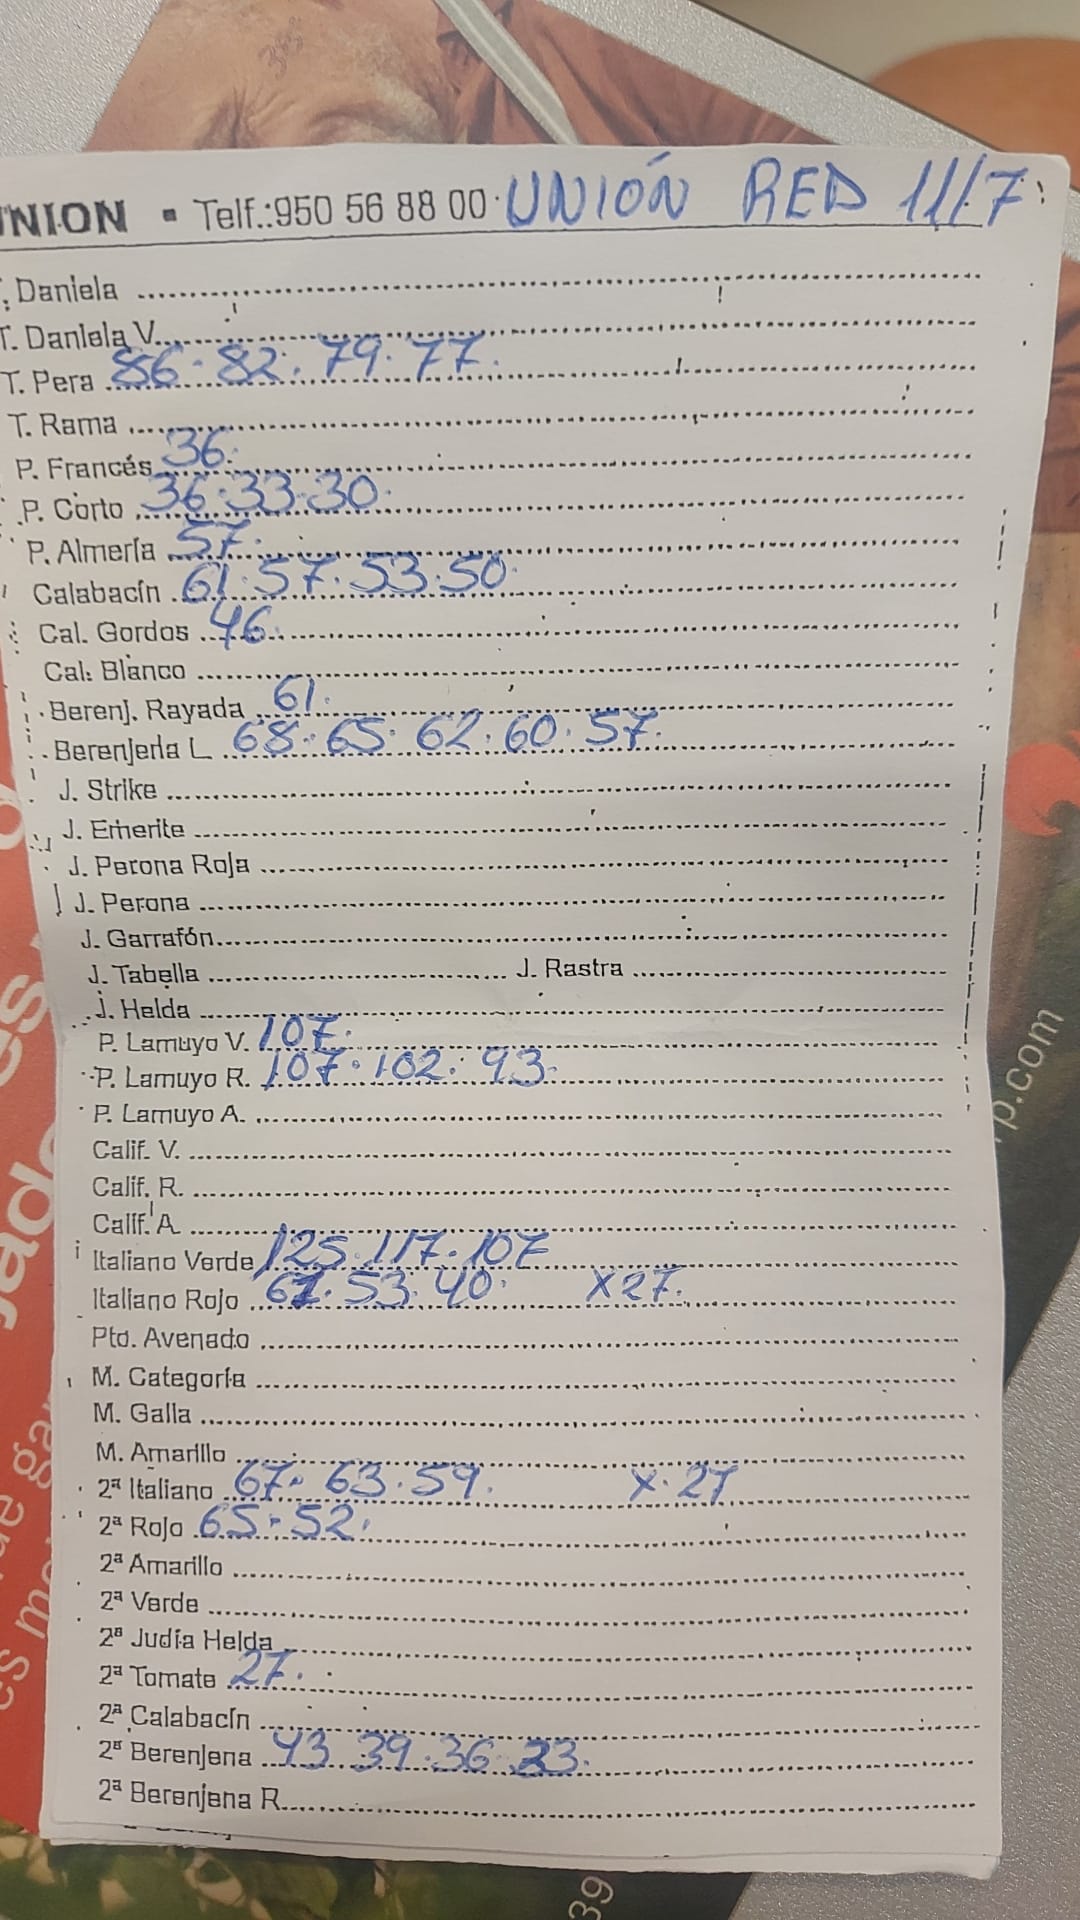 UNION - Telf.:950 56 88 00 UNIÓN RED 11/7
. Daniela
T. Daniela V.
T. Pera 86. 82. 79. 77.
T. Rama
P. Francés 36.
P. Corto 36. 33. 30.
P. Almería 57.
Calabacín 61. 57. 53. 50.
Cal. Gordos 46.
Cal. Blanco
Berenj. Rayada 61.
Berenjena L 68. 65. 62. 60. 57.
J. Strike
J. Emerite
J. Perona Roja
J. Perona
J. Garrafón
J. Tabella J. Rastra
J. Helda
P. Lamuyo V. 107.
P. Lamuyo R. 107. 102. 93.
P. Lamuyo A.
Calif. V.
Calif. R.
Calif. A
Italiano Verde 125. 117. 107
Italiano Rojo 53. 40. X27.
Pto. Avenado
M. Categoría
M. Galla
M. Amarillo
2ª Italiano 67. 63. 59. X. 27
2ª Rojo 65. 52.
2ª Amarillo
2ª Verde
2ª Judía Helda
2ª Tomate 27.
2ª Calabacín
2ª Berenjena 43 39. 36. 33.
2ª Berenjena R.
p.com
39